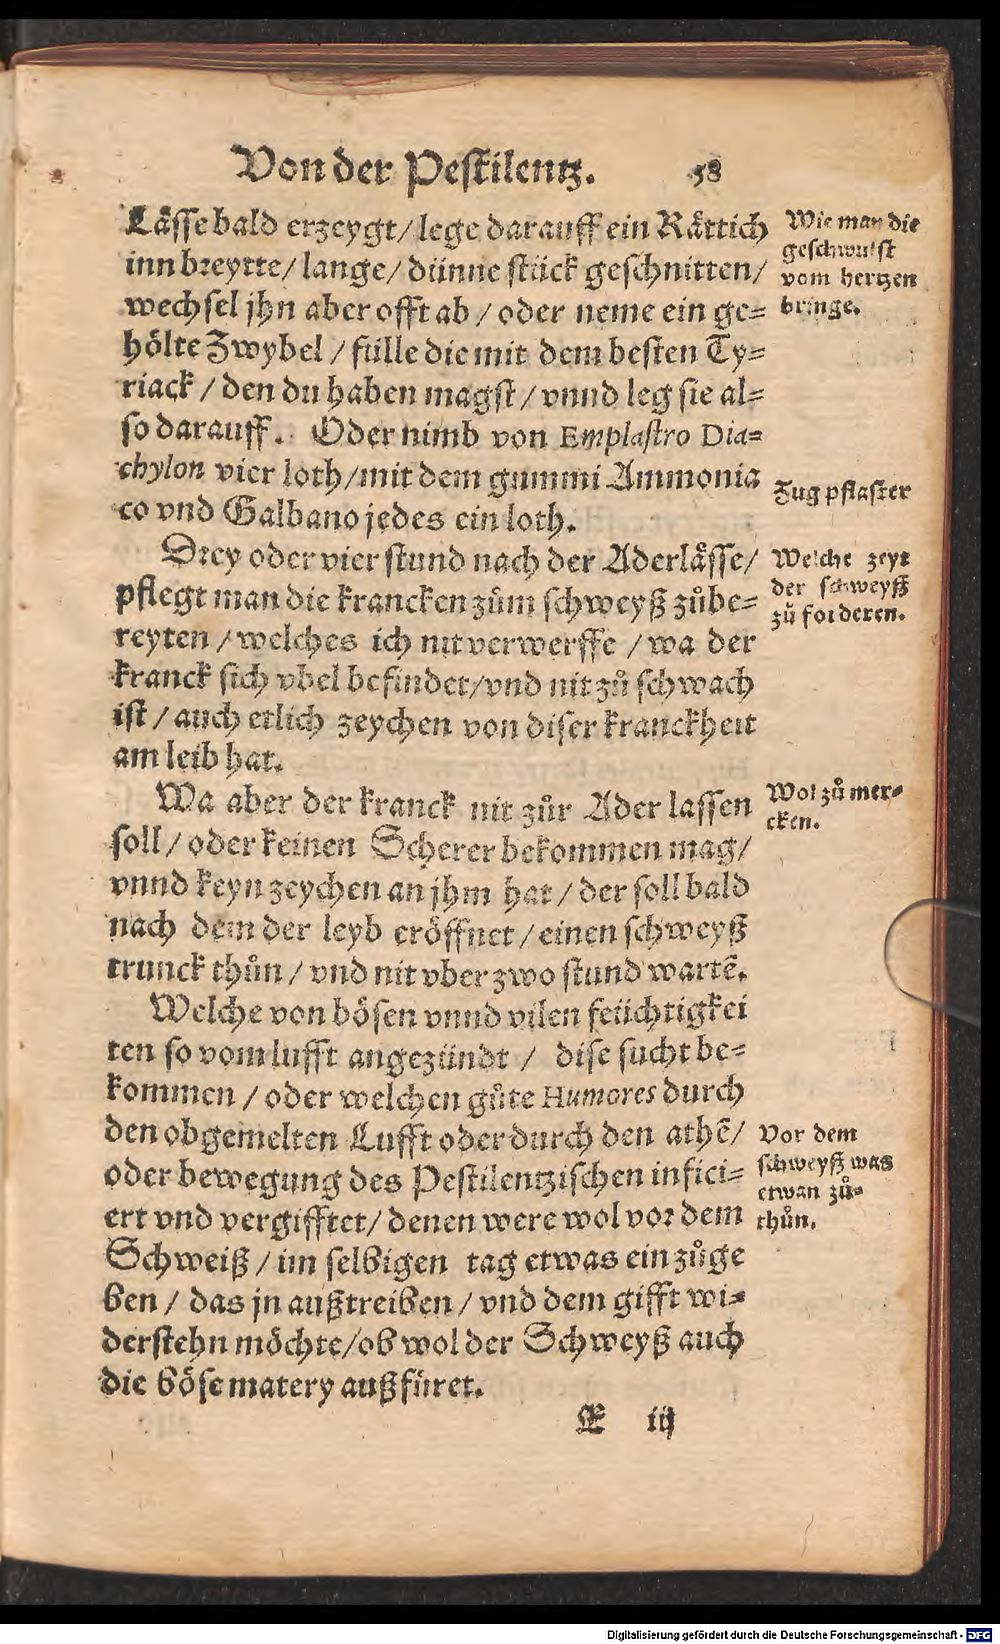 Von der Pestilentz. 58
Lässe bald erzeygt / lege darauff ein Rättich
inn breytte / lange / dünne stück geschnitten /
wechsel jhn aber offt ab / oder neme ein ge=
hölte Zwybel / fülle die mit dem besten Ty=
riack / den du haben magst / vnnd leg sie al=
so darauff. Oder nimb von Emplastro Dia=
chylon vier loth / mit dem gummi Ammonia
co vnd Galbano jedes ein loth.
Wie man die
geschwulst
vom hertzen
bringe.
Zug pflaster
Drey oder vier stund nach der Aderlässe /
pflegt man die krancken zům schweyß zůbe=
reyten / welches ich nit verwerffe / wa der
kranck sich vbel befindet / vnd nit zů schwach
ist / auch etlich zeychen von diser kranckheit
am leib hat.
Welche zeyt
der schweyß
zů forderen.
Wa aber der kranck nit zůr Ader lassen
soll / oder keinen Scherer bekommen mag /
vnnd keyn zeychen an jhm hat / der soll bald
nach dem der leyb eröffnet / einen schweyß
trunck thůn / vnd nit vber zwo stund wartẽ.
Wol zů mer=
cken.
Welche von bösen vnnd vilen feüchtigkei
ten so vom lufft angezündt / dise sucht be=
kommen / oder welchen gůte Humores durch
den obgemelten Lufft oder durch den athẽ /
oder bewegung des Pestilentzischen infici=
ert vnd vergifftet / denen were wol vor dem
Schweiß / im selbigen tag etwas ein zůge
ben / das jn außtreiben / vnd dem gifft wi=
derstehn möchte / ob wol der Schweyß auch
die böse matery außfüret.
Vor dem
schweyß was
etwan zů=
thůn.
E iij
Digitalisierung gefördert durch die Deutsche Forschungsgemeinschaft - DFG